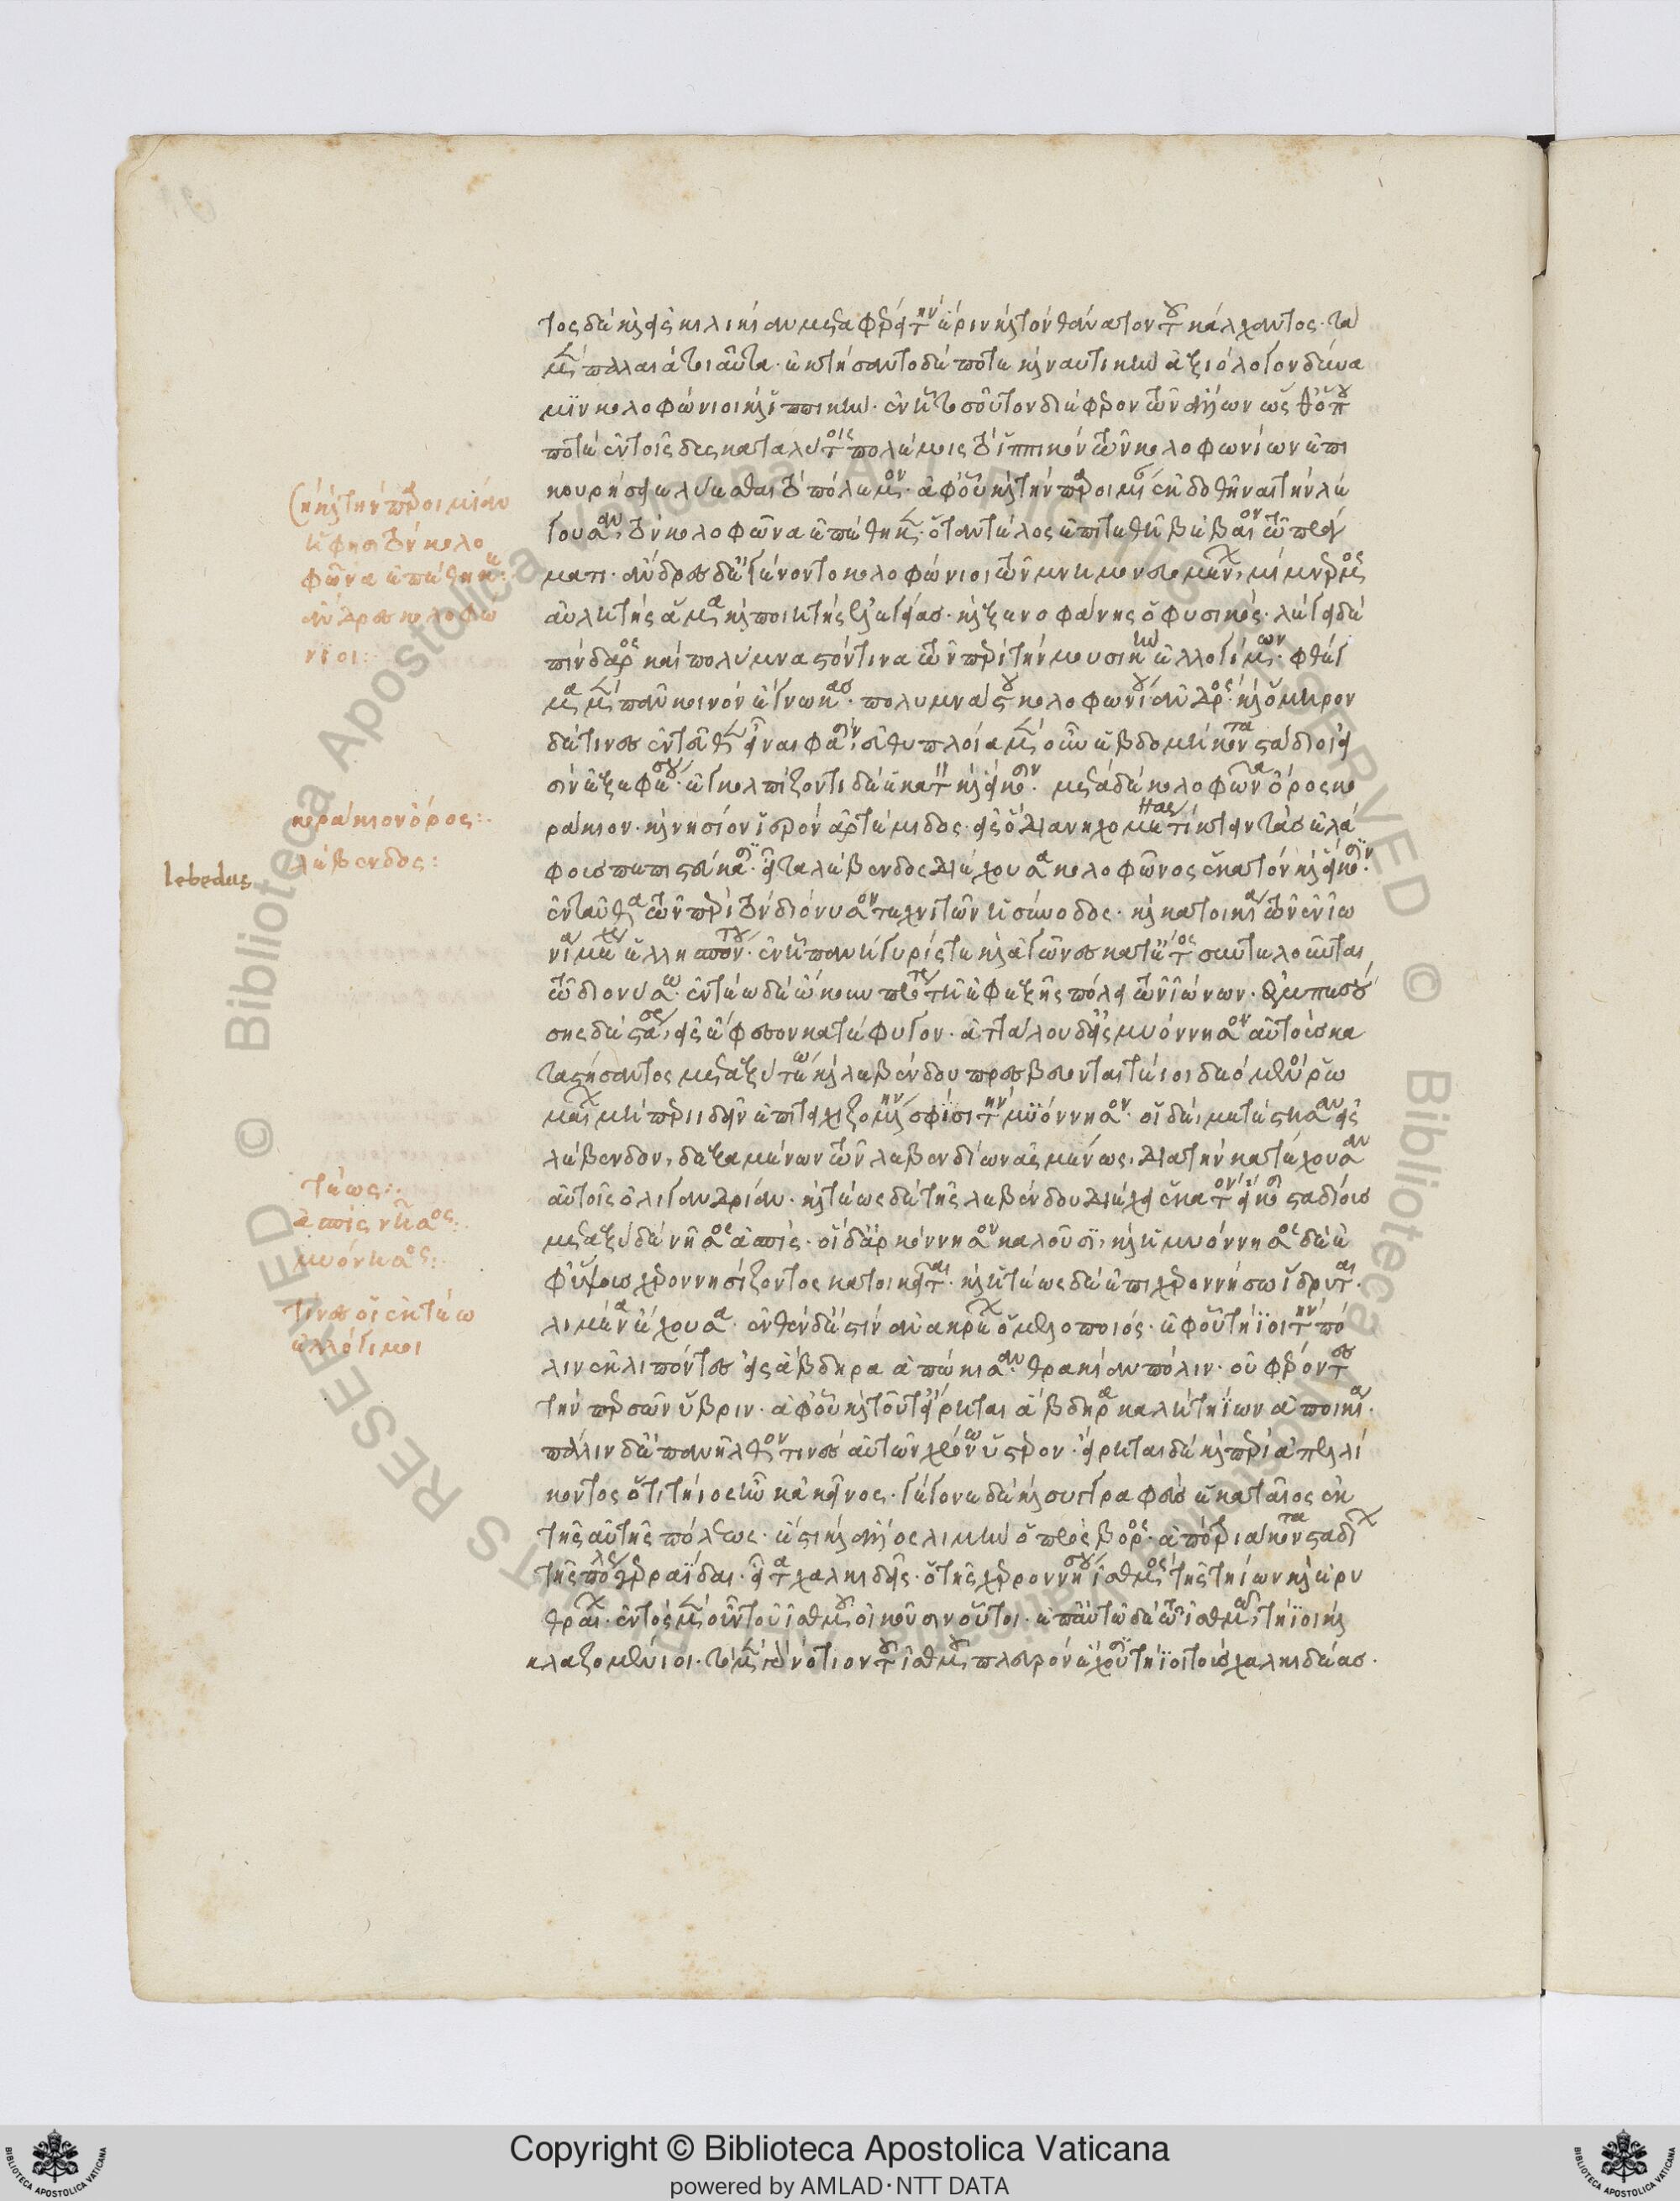 τος δὲ καὶ εἰς κιλικίαν μεταφέρει τὴν ἔριν καὶ τὸν θάνατον τοῦ κάλχαντος· τὰ
μὲν παλαιὰ τοιαῦτα· ἐκτήσαντο δέ ποτε καὶ ναυτικὴν ἀξιόλογον δύνα
μιν κολοφώνιοι καὶ ἱππικὴν· ἐν ᾗ τοσοῦτον διέφερον τῶν ἄλλων ὥσθ ὅπου
ποτὲ ἐν τοῖς δυσκαταλύτοις πολέμοις τὸ ἱππικὸν τῶν κολοφωνίων ἐπι
κουρήσει λύεσθαι τὸν πόλεμον· ἀφ' οὗ καὶ τὴν παροιμίαν ἐκδοθῆναι τὴν λέ
γουσαν, τὸν κολοφῶνα ἐπέθηκεν· ὅταν τέλος ἐπιτεθῇ βέβαιον τῷ πράγ
ματι· ἄνδρες δ' ἐγένοντο κολοφώνιοι τῶν μνημονευομένων, μίμνερμος
αὐλητὴς ἅμα καὶ ποιητὴς ἐλεγείας· καὶ ξενοφάνης ὁ φυσικός· λέγει δὲ
πίνδαρος καὶ πολύμναστόν τινα τῶν περὶ τὴν μουσικὴν ἐλλογίμων· φθέγ
μα μὲν πάγκοινον ἔγνωκας· πολυμνάστου κολοφωνίου ἀνδρός· καὶ ὅμηρον
δέ τινες ἐντεῦθεν εἶναι φασὶν, εὐθυπλοία μὲν οὖν ἑβδομήκοντα στάδιοι εἰ
σὶν ἐξ ἐφέσου· ἐγκολπίζοντι δὲ ἑκατὸν καὶ εἴκοσιν· μετὰ δὲ κολοφῶνα ὄρος κο
ράκιον· καὶ νησίον ἱερὸν ἀρτέμιδος· εἰς ὃ διανηχομένας τίκτειν τὰς ἐλά
φους πεπιστεύκασι· εἶτα λέβενδος διέχουσα κολοφῶνος ἑκατὸν καὶ εἴκοσιν·
ἐνταῦθα τῶν περὶ τὸν διόνυσον τεχνιτῶν ἡ σύνοδος· καὶ κατοικία τῶν ἐν ἰω
νία μέχρι ἑλλησπόντου· ἐν ᾗ πανήγυρίς τε καὶ ἀγῶνες κατ' ἔτος συντελοῦνται
τῷ διονύσω· ἐν τέω δὲ ᾤκουν πρότερον τῇ ἐφεξῆς πόλει τῶν ἰώνων· ἐμπεσού
σης δὲ στάσεως, εἰς ἔφεσον κατέφυγον· ἀττάλου δ' εἰς μυόννησον αὐτοὺς κα
ταστήσαντος μεταξὺ τέω καὶ λεβένδου πρεσβεύονται τέιοι δεόμενοι ῥω
μαίων μὴ περιιδεῖν ἐπιτειχιζομένην σφίσι τὴν μυόννησον· οἱ δὲ, μετέστησαν εἰς
λέβενδον, δεξαμένων τῶν λεβενδίων ἀσμένως, διὰ τὴν κατέχουσαν
αὐτοῖς ὀλιγανδρίαν· καὶ τέως δὲ τῆς λεβένδου διέχει ἑκατὸν εἴκοσι σταδίους
μεταξὺ δὲ νῆσος ἀσπίς· οἱ δ' ἀρκόννησον καλοῦσι, καὶ ἡ μυόννησος δὲ ἐ
φ' ὕψους χερροννησίζοντος κατοικεῖται· καὶ ἡ τέως δὲ ἐπὶ χερροννήσω ἵδρυται·
λιμένα ἔχουσα· ἐνθένδ' ἐστὶν ἀνακρέων ὁ μελοποιός· ἐφ' οὗ τήϊοι τὴν πό
λιν ἐκλιπόντες εἰς ἄβδηρα ἀπώκησαν θρακίαν πόλιν· οὐ φέροντες
τὴν περσῶν ὕβριν· ἀφ' οὗ καὶ τοῦτ' εἴρηται ἄβδηρα καλὴ τηΐων ἀποικία·
πάλιν δ' ἐπανῆλθον τινὲς αὐτῶν χρόνω ὕστερον· εἴρηται δὲ καὶ περὶ ἀπελλι
κοντος ὅτι τήιος ἦν κἀκεῖνος· γέγονε δὲ καὶ συγγραφεὺς ἑκαταῖος ἐκ
τῆς αὐτῆς πόλεως· ἔστι καὶ ἄλλος λιμὴν ὁ πρόσβορος· ἀπὸ τριάκοντα σταδίων
τῆς πόλεως χερραΐδαι· εἶτα χαλκιδεῖς· ὁ τῆς χερροννήσου ἰσθμὸς τῆς τηίων καὶ ἐρυ
θραίων· ἐντὸς μὲν οὖν τοῦ ἰσθμοῦ οἰκοῦσιν οὗτοι· ἐπ' αὐτῷ δὲ τῷ ἰσθμῷ, τήϊοι καὶ
κλαζομένιοι· τὸ μὲν γὰρ νότιον τοῦ ἰσθμοῦ πλευρὸν ἔχουσι τήϊοι τοὺς χαλκιδέας·
(καὶ τὴν παροιμίαν
ἥ φησι τὸν κολο
φῶνα ἐπέθηκε:
ἄνδρες κολοφώ
νιοι:
κοράκιον ὄρος:
λέβενδος:
lebedus
τέως:
ἀσπὶς νῆσος:
μυόνησος:
τινες οἱ ἐκ τέω
ἐλλόγιμοι
© Biblioteca Apostolica Vaticana. ALL RIGHTS RESERVED
Copyright © Biblioteca Apostolica Vaticana
powered by AMLAD·NTT DATA
BIBLIOTECA APOSTOLICA VATICANA
BIBLIOTECA APOSTOLICA VATICANA